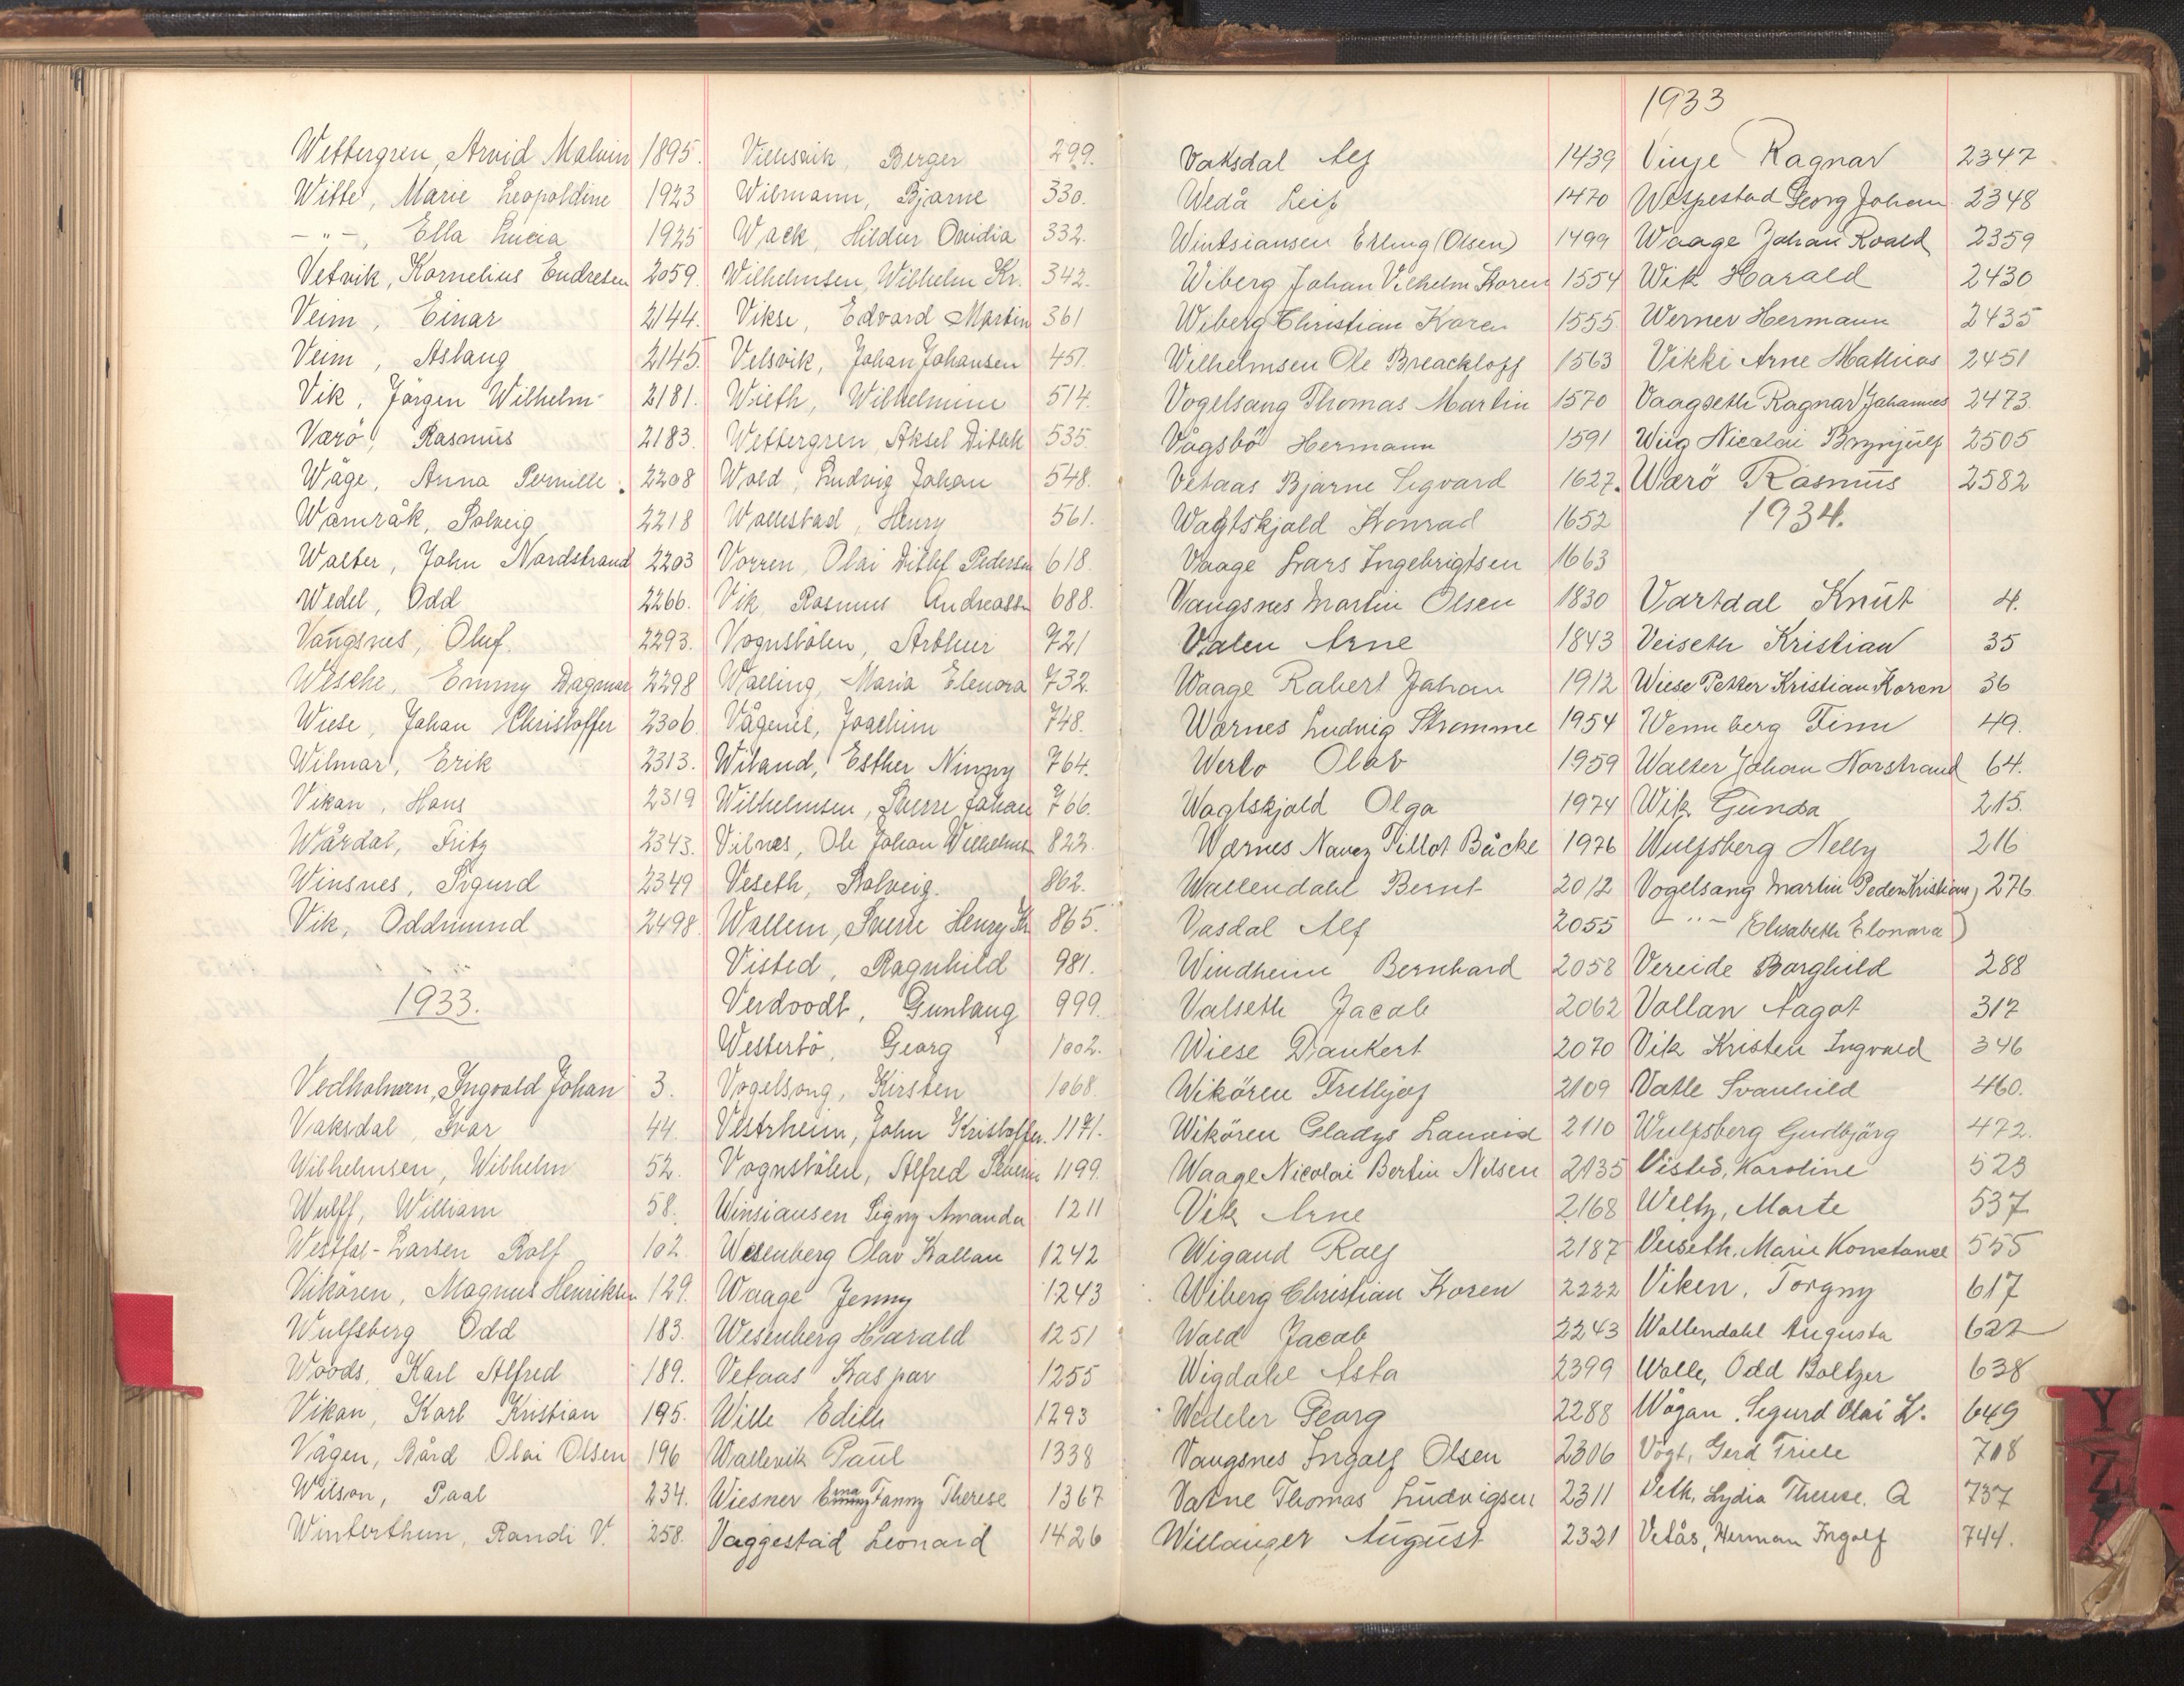 Wettergren, Arvid Malvin 1895.
Witte, Marie Leopoldine 1923
-"-, Ella Lucia 1925
Vetvik, Kornelius Endresen 2059.
Veim, Einar 2144.
Veim, Aslaug 2145.
Vik, Jörgen Wilhelm 2181.
Værö, Rasmus 2183.
Wåge, Anna Pernille. 2208
Wamråk, Solveig 2218
Walter, John Nordstrand 2203
Wedel, Odd 2266.
Vangsnes, Oluf. 2293.
Wesche, Emmy Dagmar 2298
Wiese, Johan Christoffer 2306
Wilmar, Erik 2313.
Vikan, Hans 2319
Wårdal, Fritz 2343.
Winsnes, Sigurd 2349
Vik, Oddmund 2498.
1933.
Vedholmen, Ingvald Johan 3.
Vaksdal, Ivar 44.
Wilhelmsen, Wilhelm 52.
Wulff, William 58.
Westfal-Larsen Rolf 102
Vikören, Magnus Henriksen 129.
Wulfsberg Odd 183.
Woods, Karl Alfred 189.
Vikan, Karl Kristian 195.
Vågen, Bård Olai Olsen 196
Wilson, Paal 234.
Winterthun, Randi V. 258.
Berger 299.
Wilmann, Bjarne 330.
Wack, Hildur Ovidia 332.
Wilhelmsen, Wilhelm Kr. 342.
Vikse, Edvard Martin 361
Velsvik, Johan Johansen 451.
Wieth, Wilhelmine 514.
Wettergren, Aksel 535.
Wold, Ludvig Johan 548.
Wallestad, Henry 561.
Vorren, Olai Ditlef Pedersen 618.
Vik, Rasmus Andreassen 688.
Vognstölen, Arthur 721
Walling, Maria Elenora 732.
Vågenes, Joachim 748.
Wiland, Esther Ninny 764.
Wilhelmsen, Sverre Johan 766.
Vilnes, Ole Johan Wilhelmsen 822.
Veseth, Solveig. 862.
Wallem, Sverre Henry Kr 865.
Visted, Ragnhild 981.
Verdoodt, Gunlaug 999.
Westerbö, Georg 1002.
Vogelsong, Kirsten 1068.
Vestrheim, John Kristoffer. 1171.
Vognstölen, Alfred Severin 1199.
Winsiansen Signy Amanda 1211
Wesenberg Olav Kallan 1242
Waage Jenny 1243
Wesenberg Harald 1251
Vetaas Kaspar 1255
Wille Edith 1293
Wallevik Paul 1338
Wiesner Erna Fanny Therese 1367
Vaggestad Leonard 1426
Vaksdal Alf 1439
Wedå Leif 1470
Wintsiansen Erling (Olsen) 1499
Wiberg Johan Vilhelm Koren 1554
Wiberg Christian Koren 1555
Wilhelmsen Ole Breackloff 1563
Vogelsang Thomas Martin 1570
Vågsbö Hermann 1591
Vetaas Bjarne Sigvard 1627.
Wagtskjold Konrad 1652
Vaage Lars Ingebrigtsen 1663
Vangsnes Martin Olsen 1830
Valen Arne 1843
Waage Robert Johan 1912
Wornes Ludvig Stromme 1954
Werlo Olav 1959
Wagtskjold Olga 1974
Wærnes Navez Tillot Bäcke 1976
Wallendahl Bernt 2012
Vasdal Alf 2055
Windheim Bernhard 2058
Valseth Jacob 2062
Wiese Dankert 2070
Wikören Fretthjof 2109
Wikören Gladys Lauvid 2110
Waage Nicolai Bertin Nilsen 2135
Vik Arne 2168
Wigand Ralf 2187
Wiberg Christian Koren 2222
Wold Jacob 2243
Wigdahl Asta 2399
Wedeler Georg 2288
Vangsnes Ingolf Olsen 2306
Vatne Thomas Ludvigsen 2311
Willanger August 2321
1933
Vinje Ragnar 2347
Wespestad Georg Johan 2348
Waage Johan Roald 2359
Wik Harald 2430
Werner Hermann 2435
Vikki Arne Mathias 2451
Vaagseth Ragnar Johannes 2473.
Wiig Nicolai Brynjulf 2505
Wærö Rasmus 2582
1934.
Vartdal Knut 4.
Veiseth Kristian 35
Wiese Petter Kristian Koren 36
Wennberg Finn 49.
Walter Johan Norstrand 64.
Wik Gunda 215.
Wulfsberg Nelly 216
Vogelsang Martin Peder Kristian) 276
-"- Elisabeth Elonora)
Vereide Borghild 288
Vollan Aagot 317
Vik Kristen Ingvald 346
Vatle Svanhild 460.
Wulfsberg Gudbjörg 472.
Visted, Karoline 523
Weltz, Marte 537
Veiseth, Marie Konstanse 555
Viken, Torgny 617
Wallendahl Augusta 622
Walle, Odd Boltzer 638
Wågan, Sigurd Olai L. 649
Vogt, Gerd Friele 708
Veth, Lydia Therese. A 737
Vetås, Herman Ingolf 744.
Y
Z